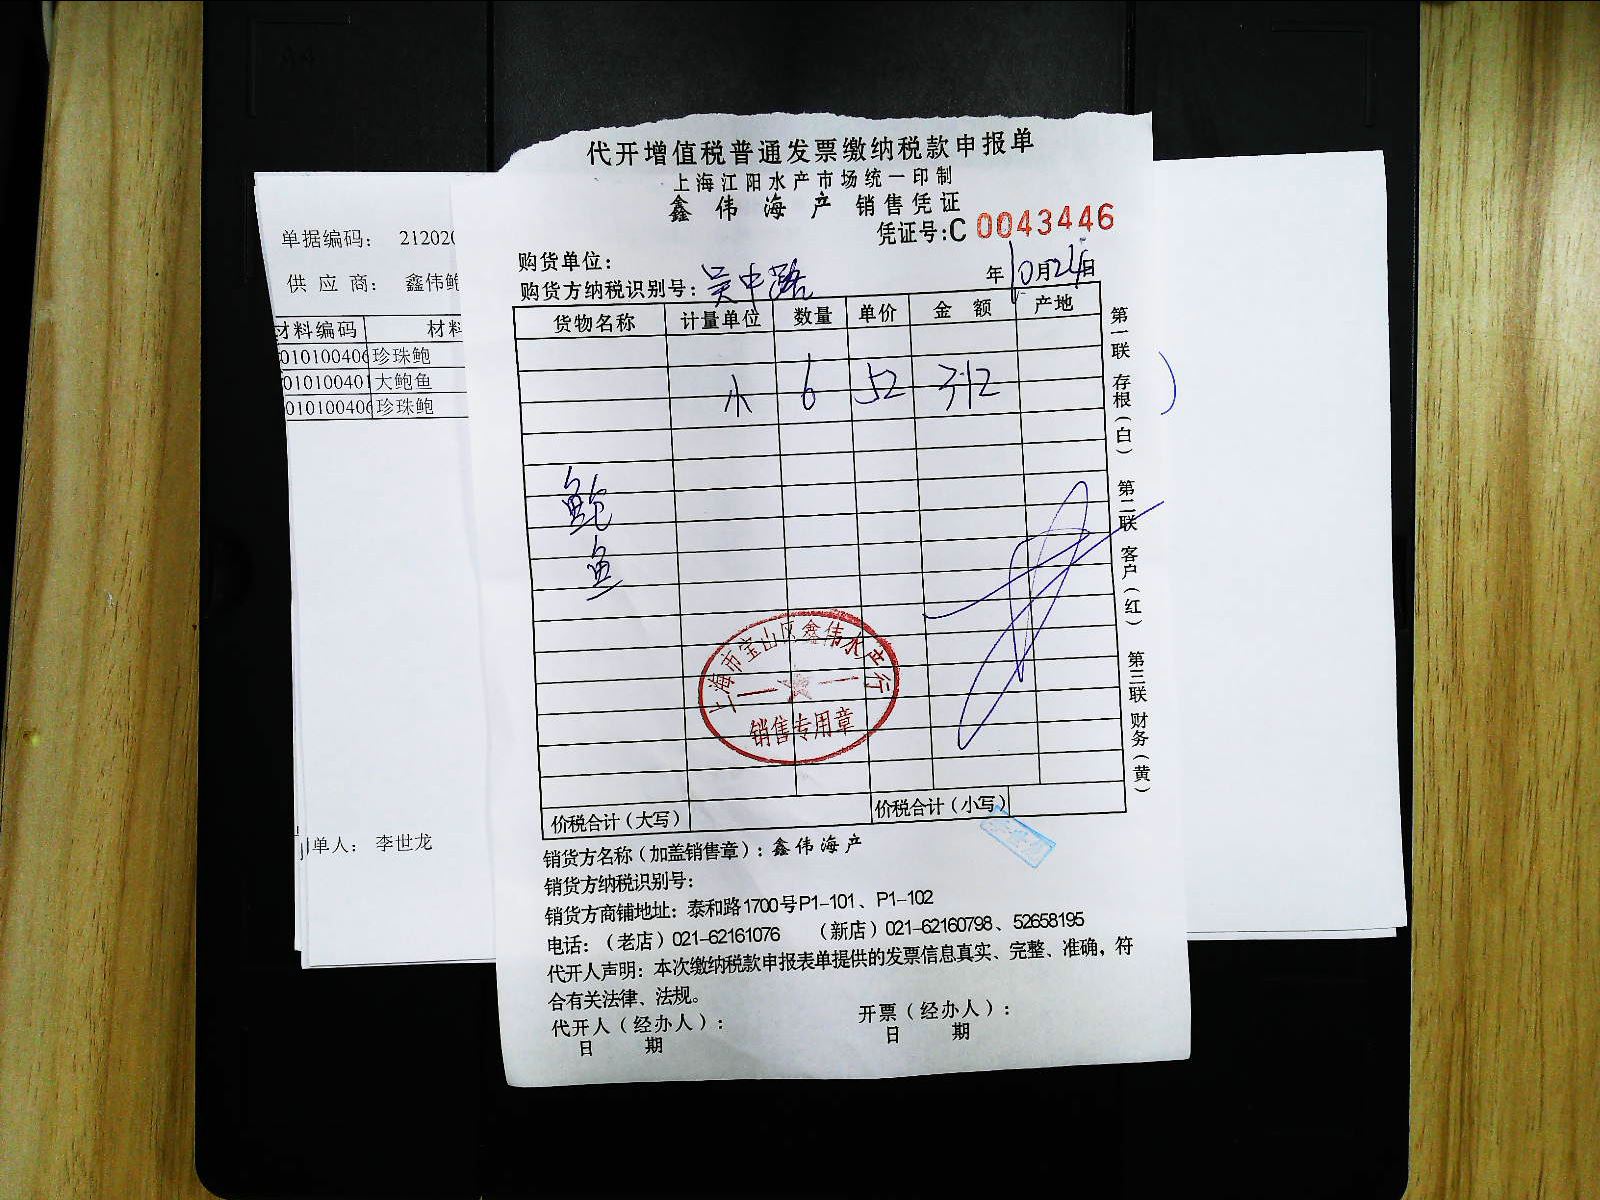 代开增值税普通发票缴纳税款申报单
上海江阳水产市场统一印制
鑫伟海产 销售凭证
凭证号:C 0043446
购货单位：
购货方纳税识别号：吴中路
年10月24日
货物名称 计量单位 数量 单价 金额 产地
小 6 52 312
鲍鱼
上海市宝山区鑫伟水产行
销售专用章
价税合计（大写） 价税合计（小写）
销货方名称（加盖销售章）：鑫伟海产
销货方纳税识别号：
销货方商铺地址：泰和路1700号P1-101、P1-102
电话：（老店）021-62161076 （新店）021-62160798、52658195
代开人声明：本次缴纳税款申报表单提供的发票信息真实、完整、准确，符
合有关法律、法规。
代开人（经办人）： 开票（经办人）：
日 期 日 期
第一联 存根（白）
第二联 客户（红）
第三联 财务（黄）
单据编码： 212020
供应商： 鑫伟鲍
材料编码 材料
010100406 珍珠鲍
010100401 大鲍鱼
010100406 珍珠鲍
制单人： 李世龙